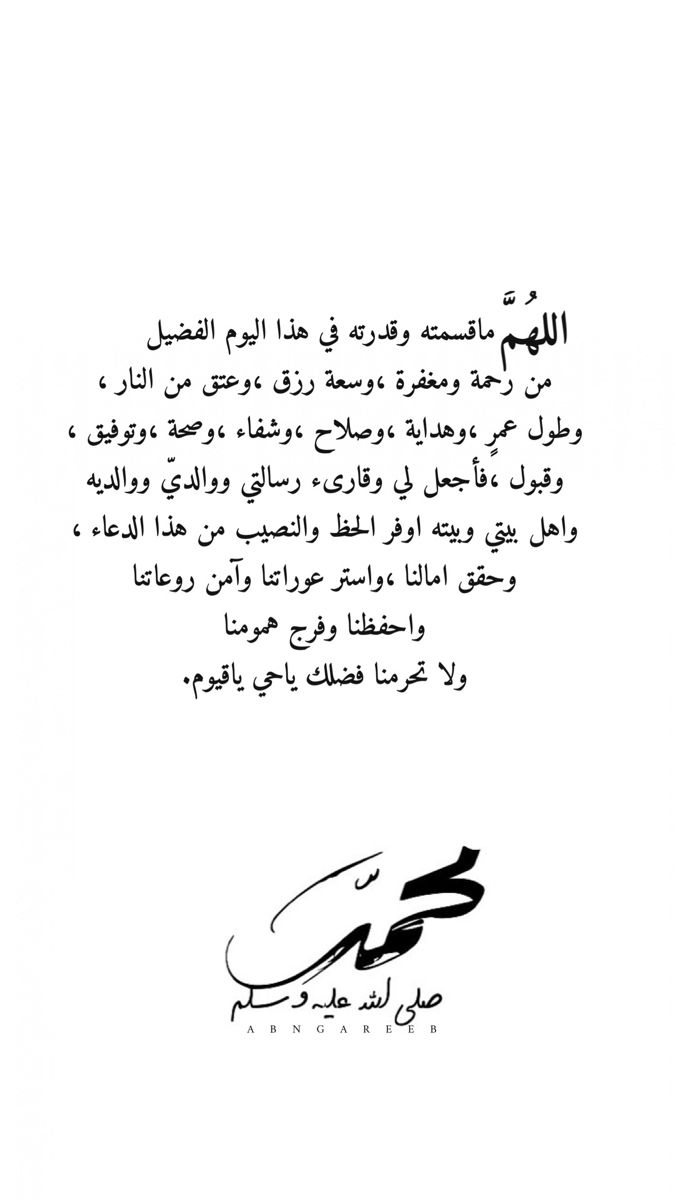 اللهُمَّ ماقسمته وقدرته في هذا اليوم الفضيل
من رحمة ومغفرة ،وسعة رزق ،وعتق من النار ،
وطول عمرٍ ،وهداية ،وصلاح ،وشفاء ،وصحة ،وتوفيق ،
وقبول ،فأجعل لي وقارىء رسالتي ووالديّ ووالديه
واهل بيتي وبيته اوفر الحظ والنصيب من هذا الدعاء ،
وحقق امالنا ،واستر عوراتنا وآمن روعاتنا
واحفظنا وفرج همومنا
ولا تحرمنا فضلك ياحي ياقيوم.
محمّد
صلى الله عليه وسلم
ABNGAREEB